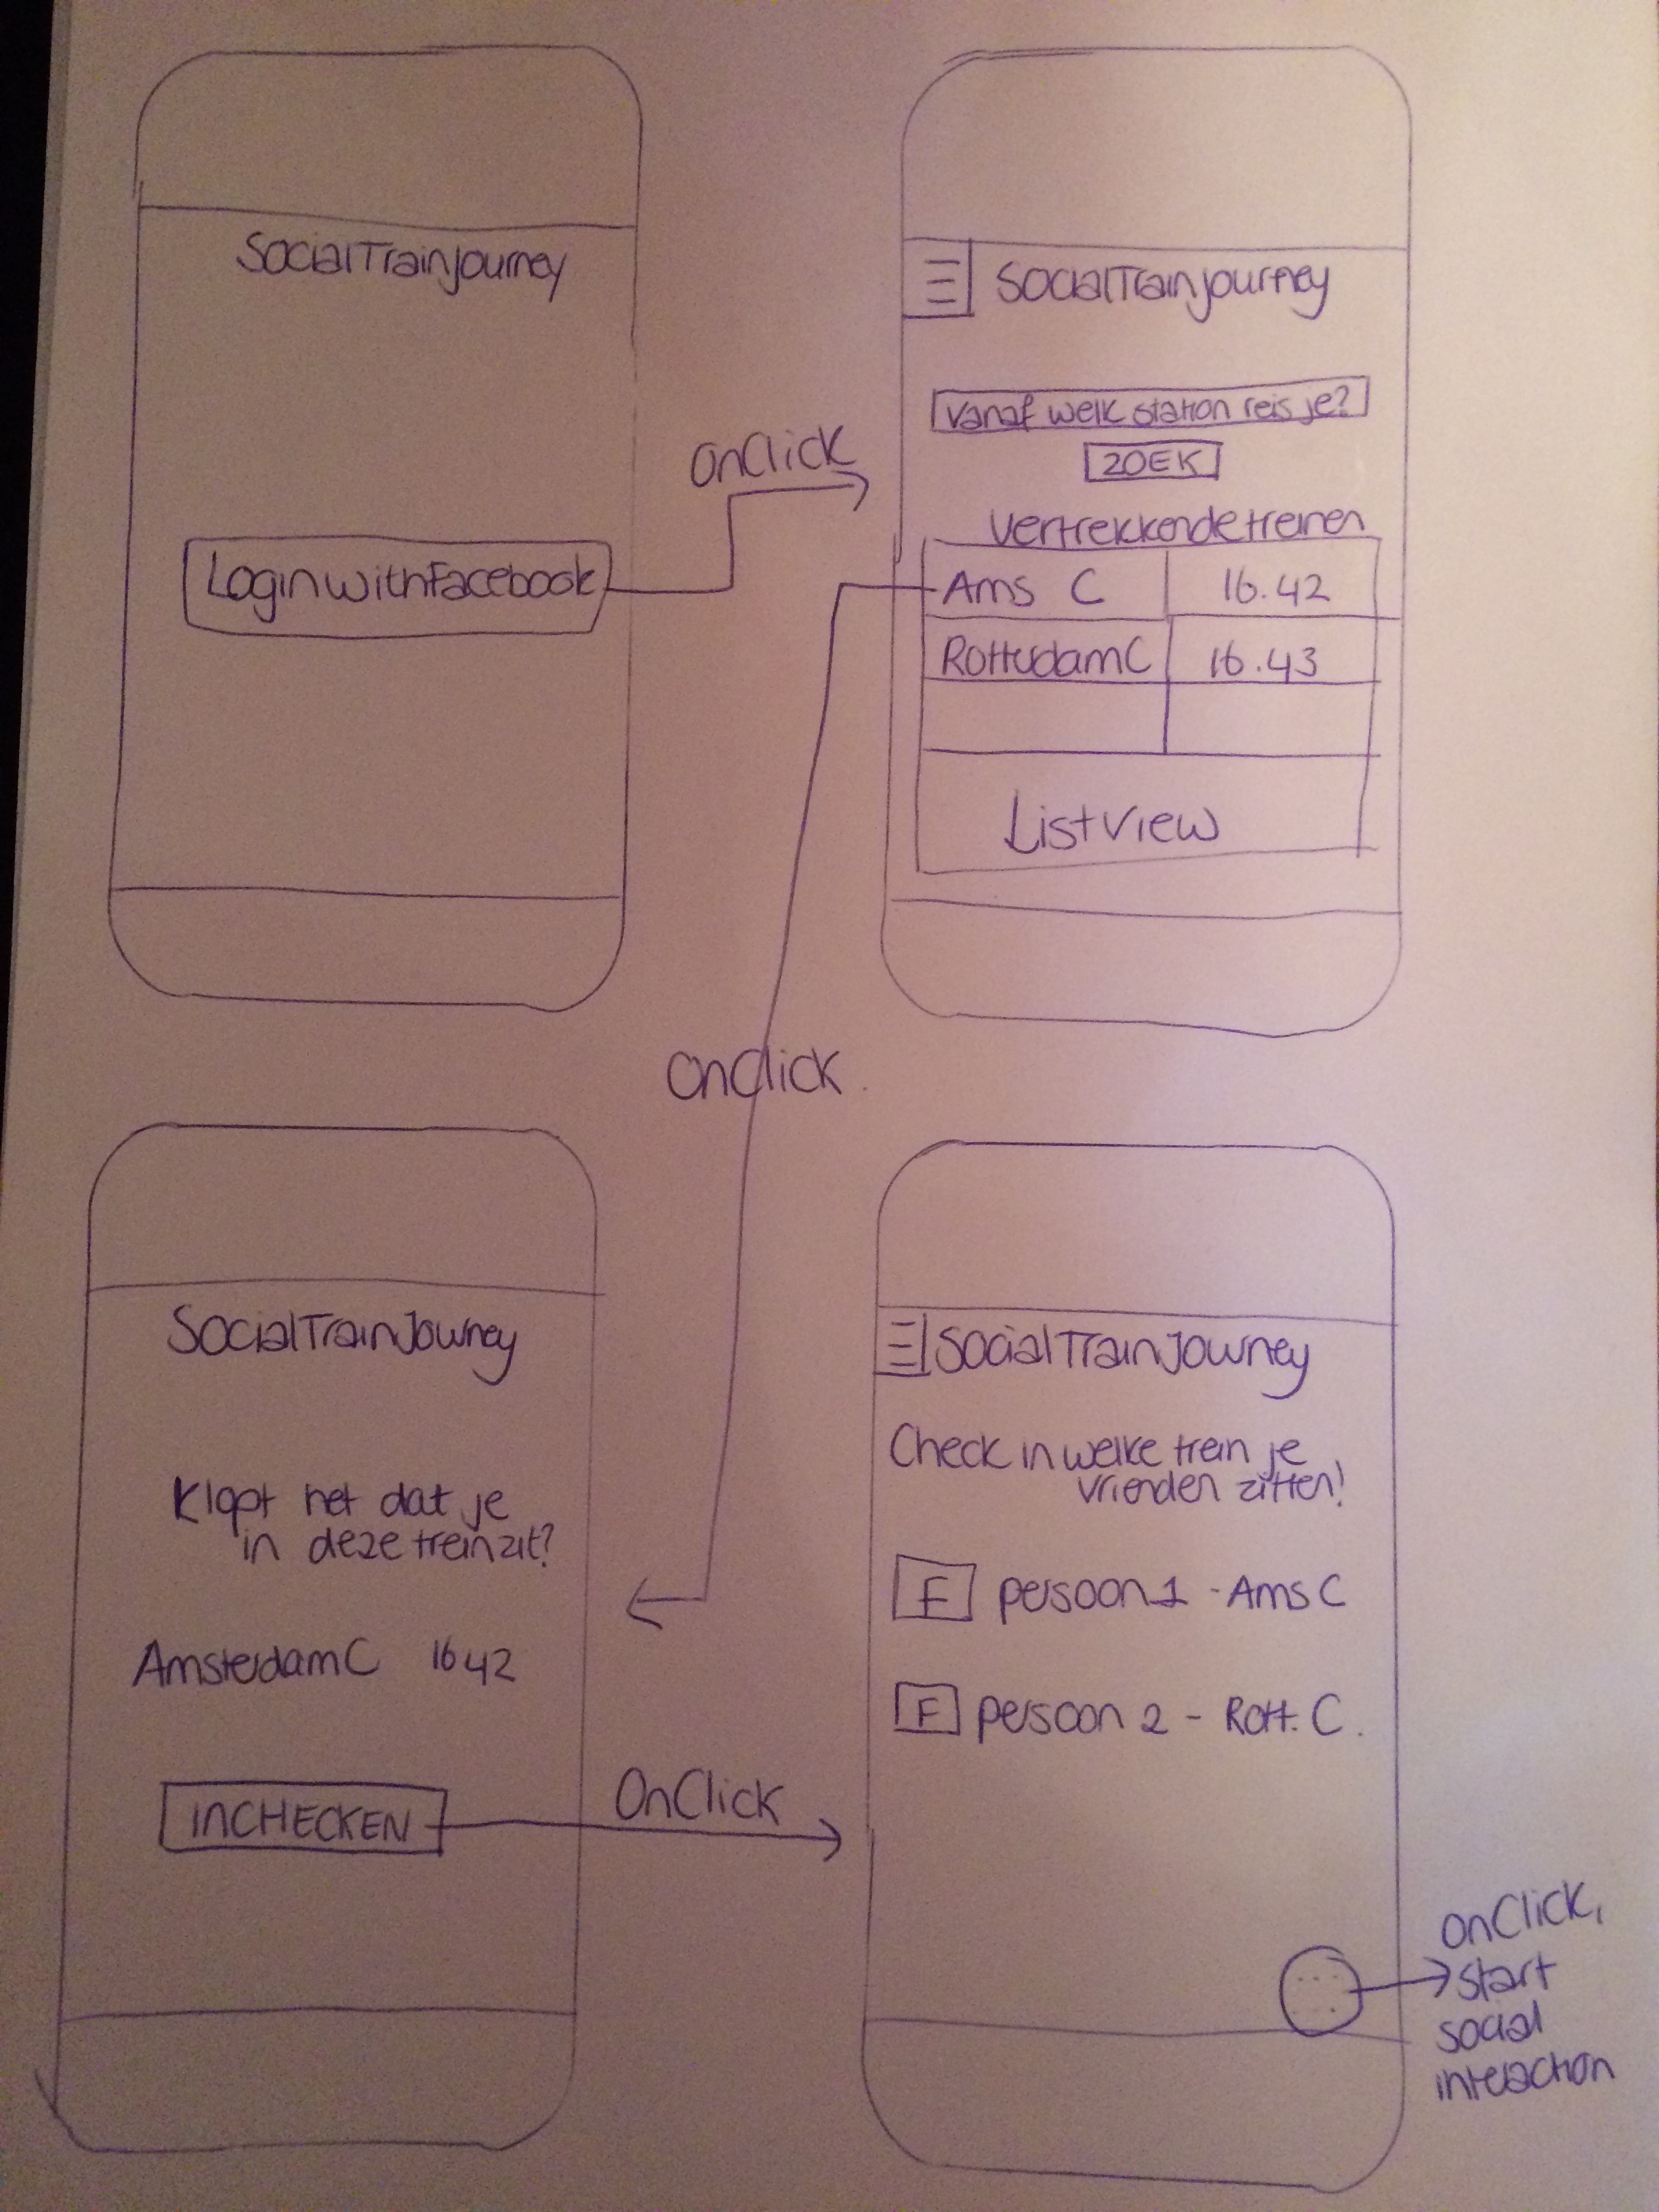 SocialTrainJourney
LoginwithFacebook
OnClick
SocialTrainJourney
Vanaf welk station reis je?
ZOEK
Vertrekkende treinen
Ams C 16.42
Rotterdam C 16.43
Listview
OnClick
SocialTrainJourney
Klopt het dat je
in deze trein zit?
Amsterdam C 16 42
INCHECKEN
OnClick
SocialTrainJourney
Check in welke trein je
vrienden zitten!
F persoon 1 - Ams C
F persoon 2 - Rott. C.
OnClick,
start
social
interaction